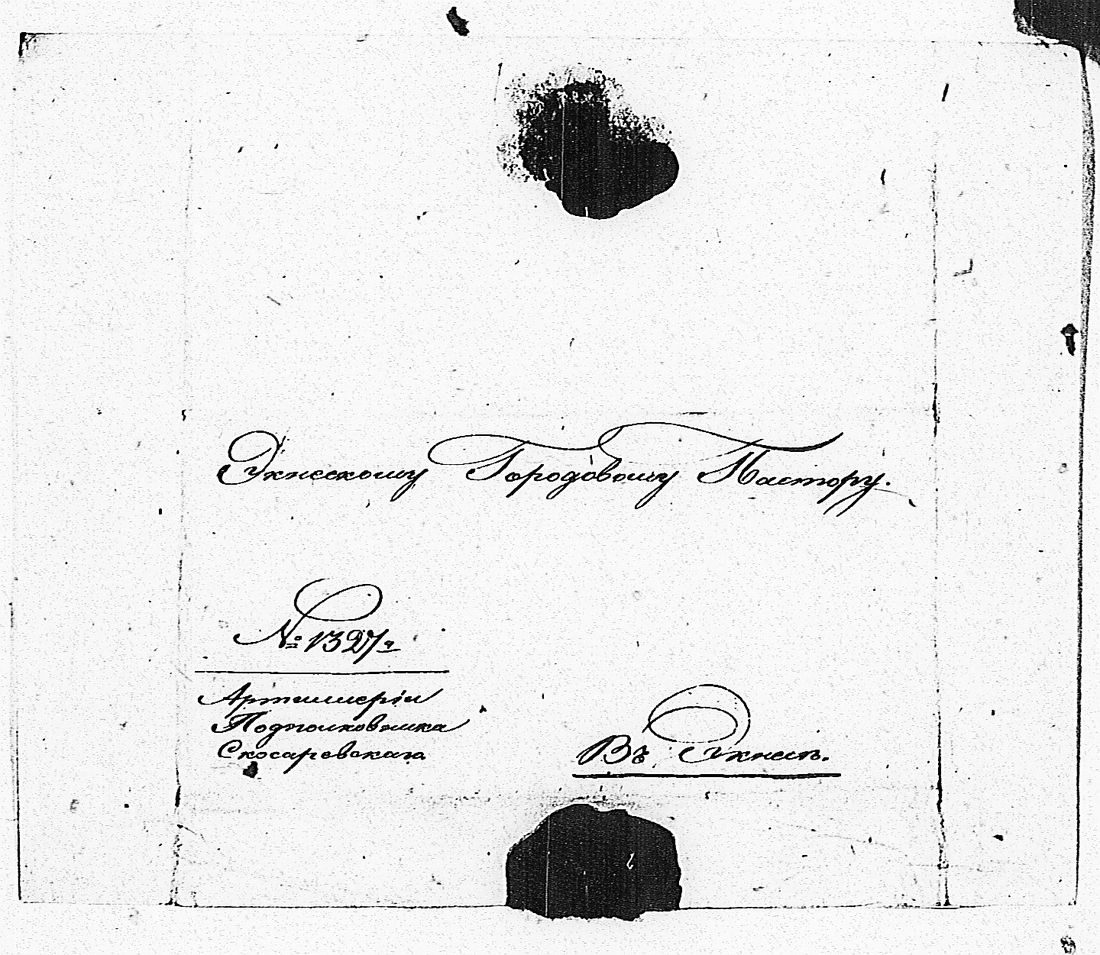 Экнесскому Городовому Пастору.
№ 1327
Артиллеріи
Подполковника
Скосаревскаго
Въ Экнесъ.